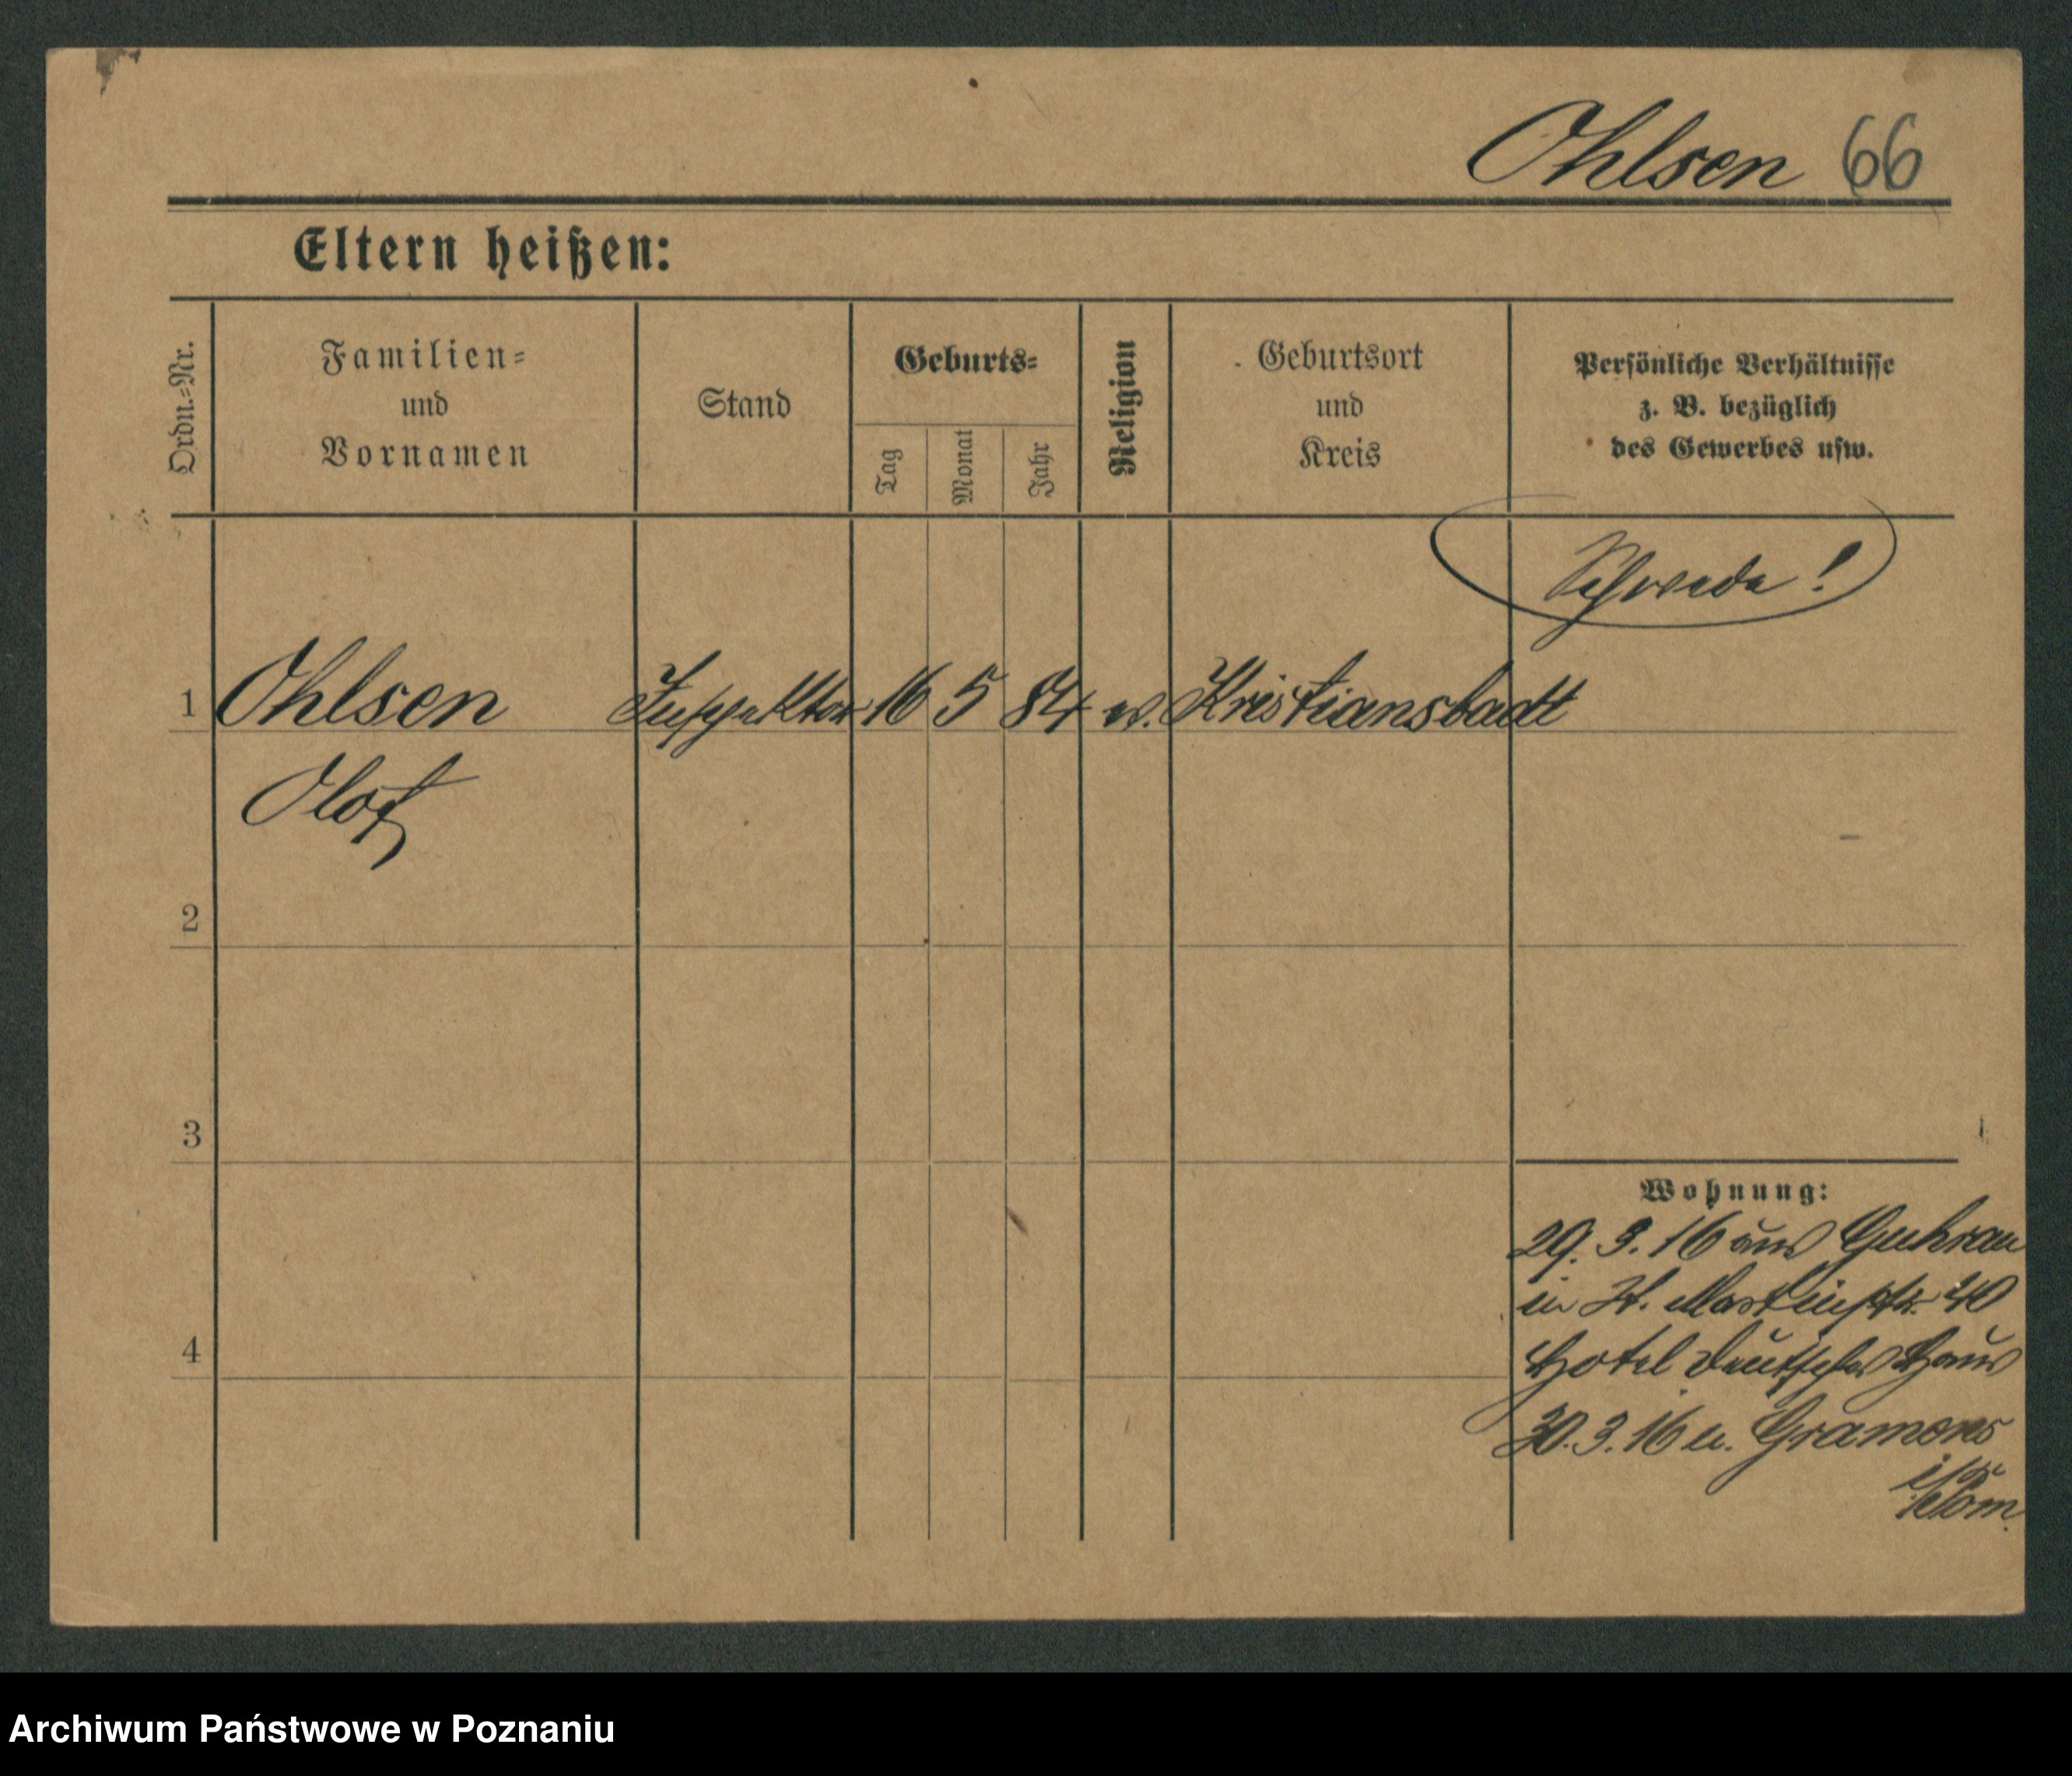 Ohlsen 66
Eltern heißen:
Ordn.=Nr.
Familien=
und
Vornamen
Stand
Geburts=
Tag
Monat
Jahr
Religion
Geburtsort
und
Kreis
Persönliche Verhältnisse
z. B. bezüglich
des Gewerbes usw.
Schwede!
1 Ohlsen Inspektor 16 5 84 ev. Kristianstadt
Olof
2
3
4
Wohnung:
29. 3. 16 aus Guhrau
in St. Martinstr. 40
Hotel Deutsches Haus
30. 3. 16 n.
i/Pom.
Archiwum Państwowe w Poznaniu